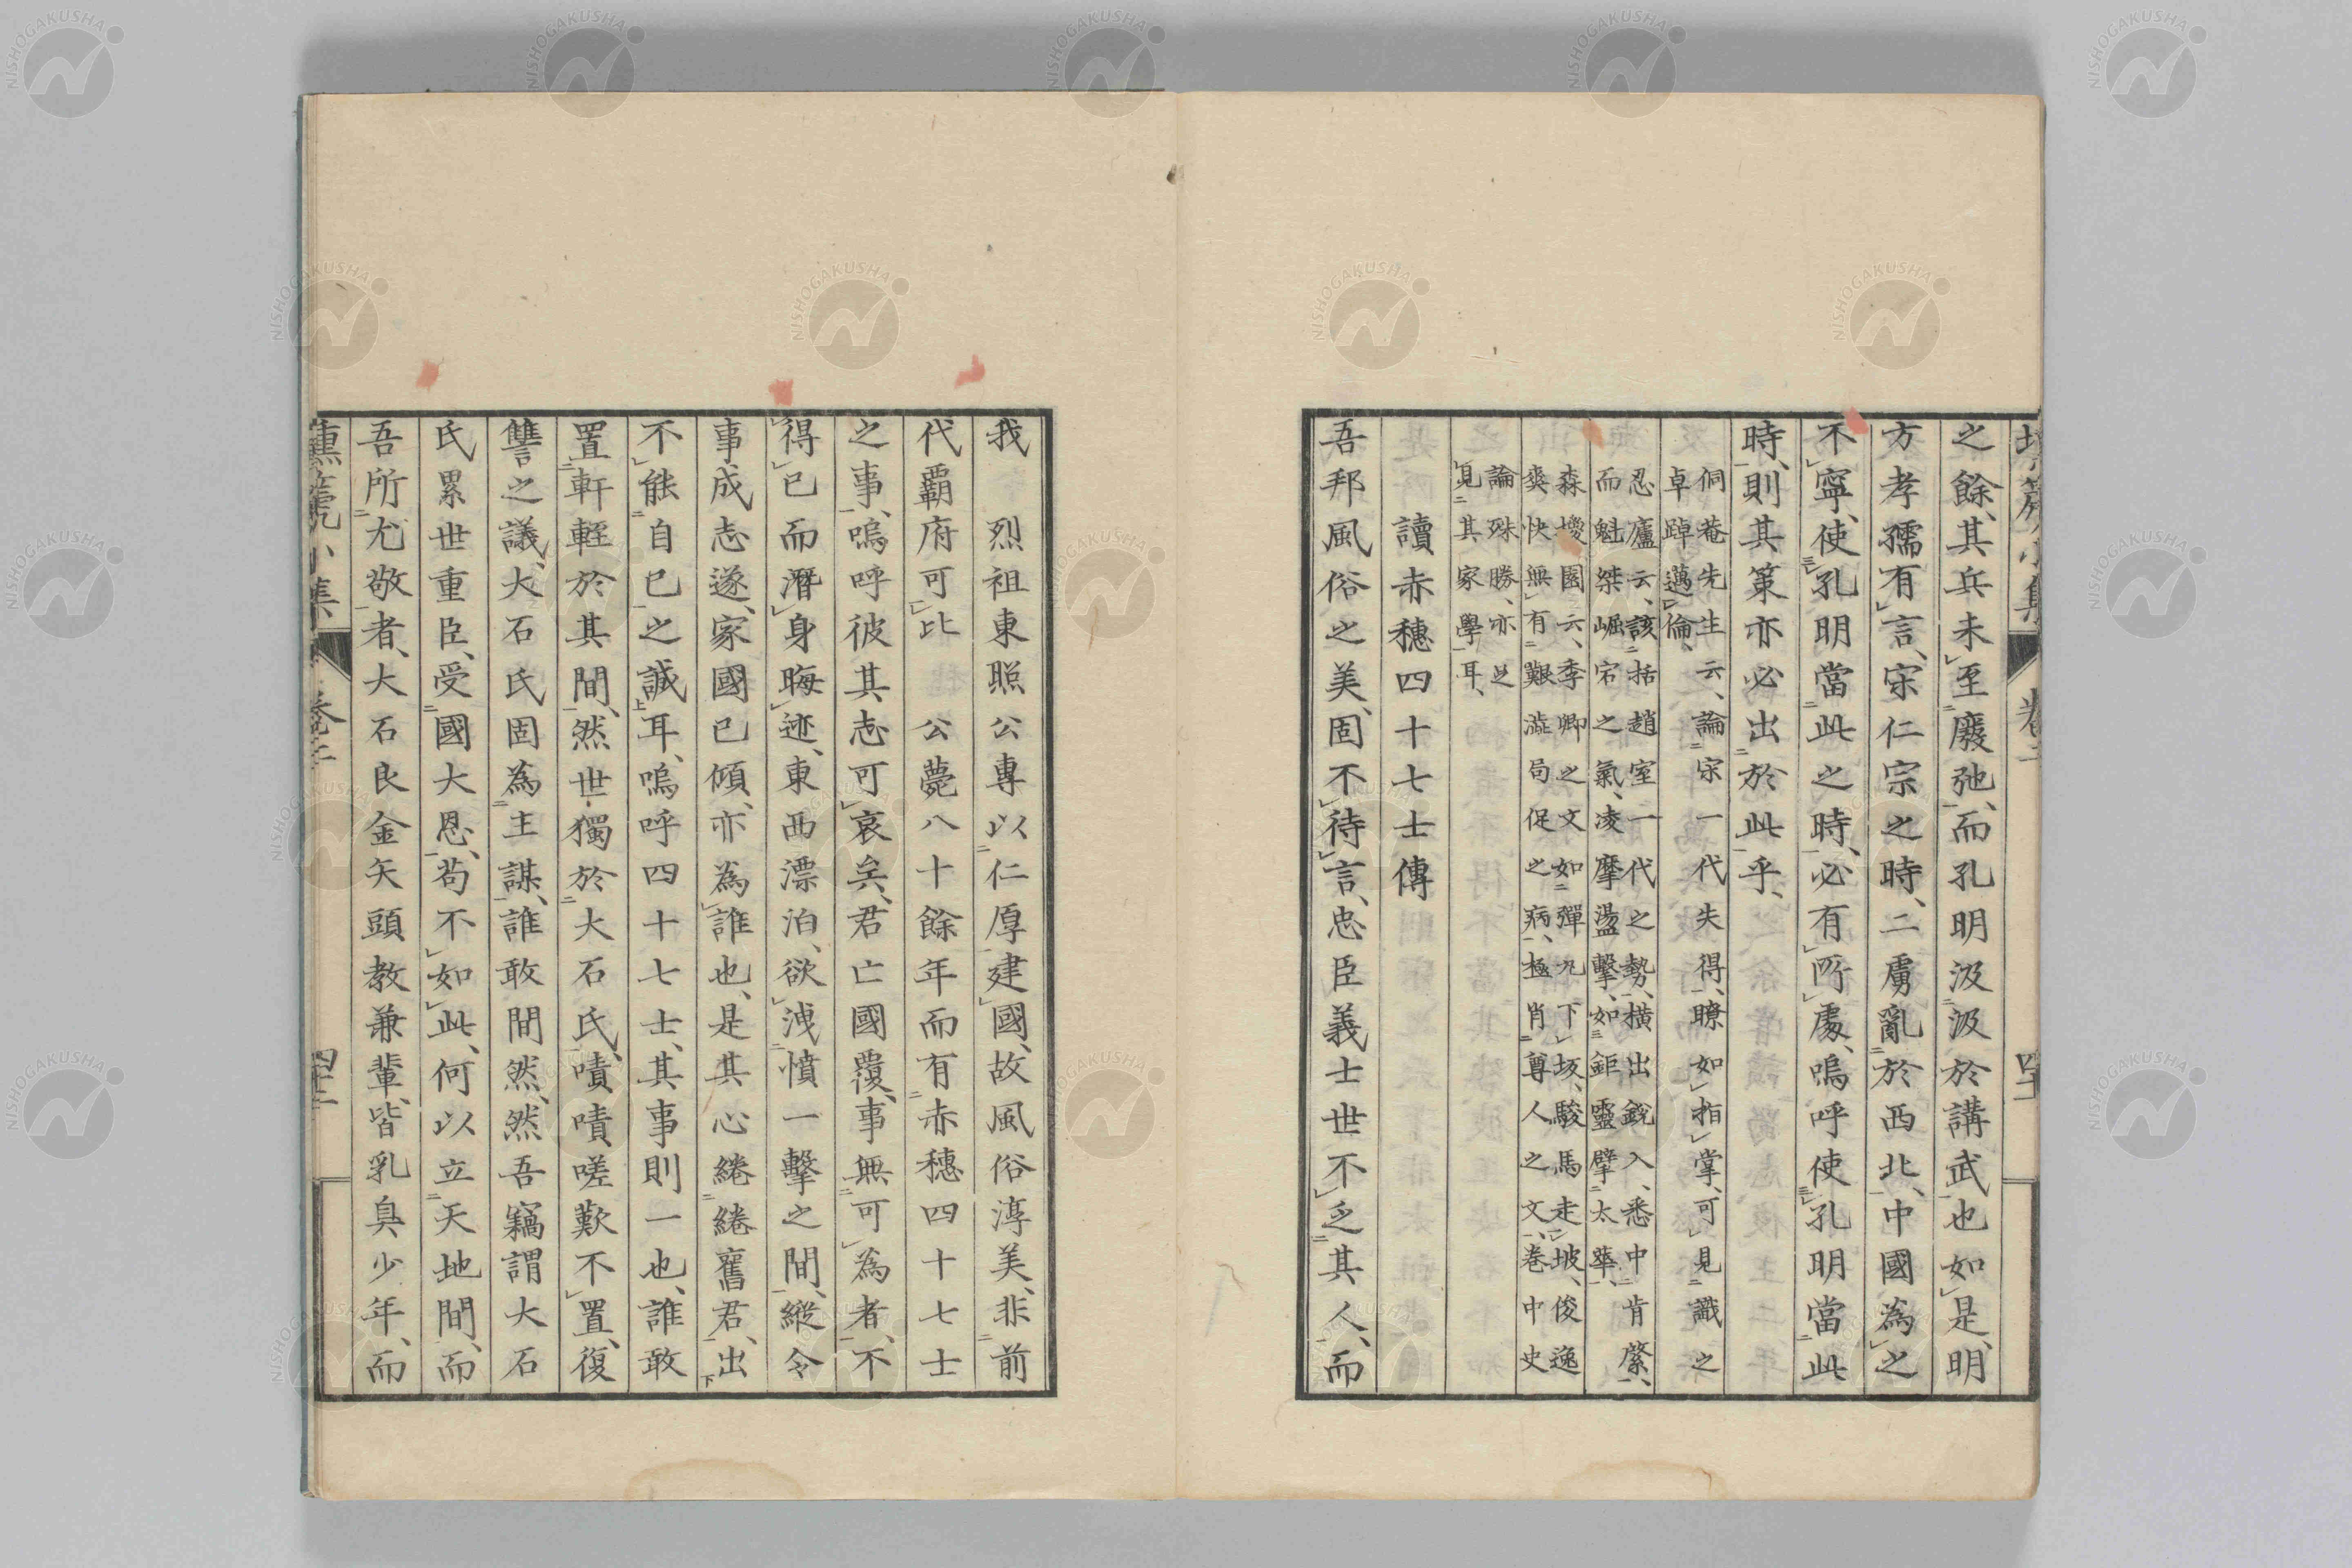 之餘、其兵未至廢弛、而孔明汲汲於講武也如是、明
方孝孺有言、宋仁宗之時、二虜亂於西北、中國為之
不寧、使孔明當此之時、必有所處、嗚呼使孔明當此
時、則其策亦必出於此乎、
侗菴先生云、論宋一代失得、瞭如指掌、可見識之
卓踔邁倫、
忍廬云、該括趙室一代之勢、橫出銳入、悉中肯綮、
而魁桀崛宕之氣、凌摩盪擊、如鉅靈擘太華、
森墩園云、季卿之文如彈丸下坂、駿馬走坡、俊逸
爽快無有艱澁局促之病、極肖尊人之文、卷中史
論殊勝、亦足
見其家學耳、
讀赤穗四十七士傳
吾邦風俗之美、固不待言、忠臣義士世不乏其人、而
我 烈祖東照公專以仁厚建國、故風俗淳美、非前
代覇府可比 公薨八十餘年而有赤穗四十七士
之事、嗚呼彼其志可哀矣、君亡國覆、事無可為者、不
得已而潛身晦迹、東西漂泊、欲洩憤一擊之間、縱令
事成志遂、家國已傾、亦為誰也、是其心綣綣舊君、出
不能自已之誠耳、嗚呼四十七士、其事則一也、誰敢
置軒輊於其間、然世獨於大石氏、嘖嘖嗟歎不置、復
讐之議、大石氏固為主謀、誰敢間然、然吾竊謂大石
氏累世重臣、受國大恩、苟不如此、何以立天地間、而
吾所尤敬者、大石良金矢頭教兼輩、皆乳臭少年、而
小集 卷二